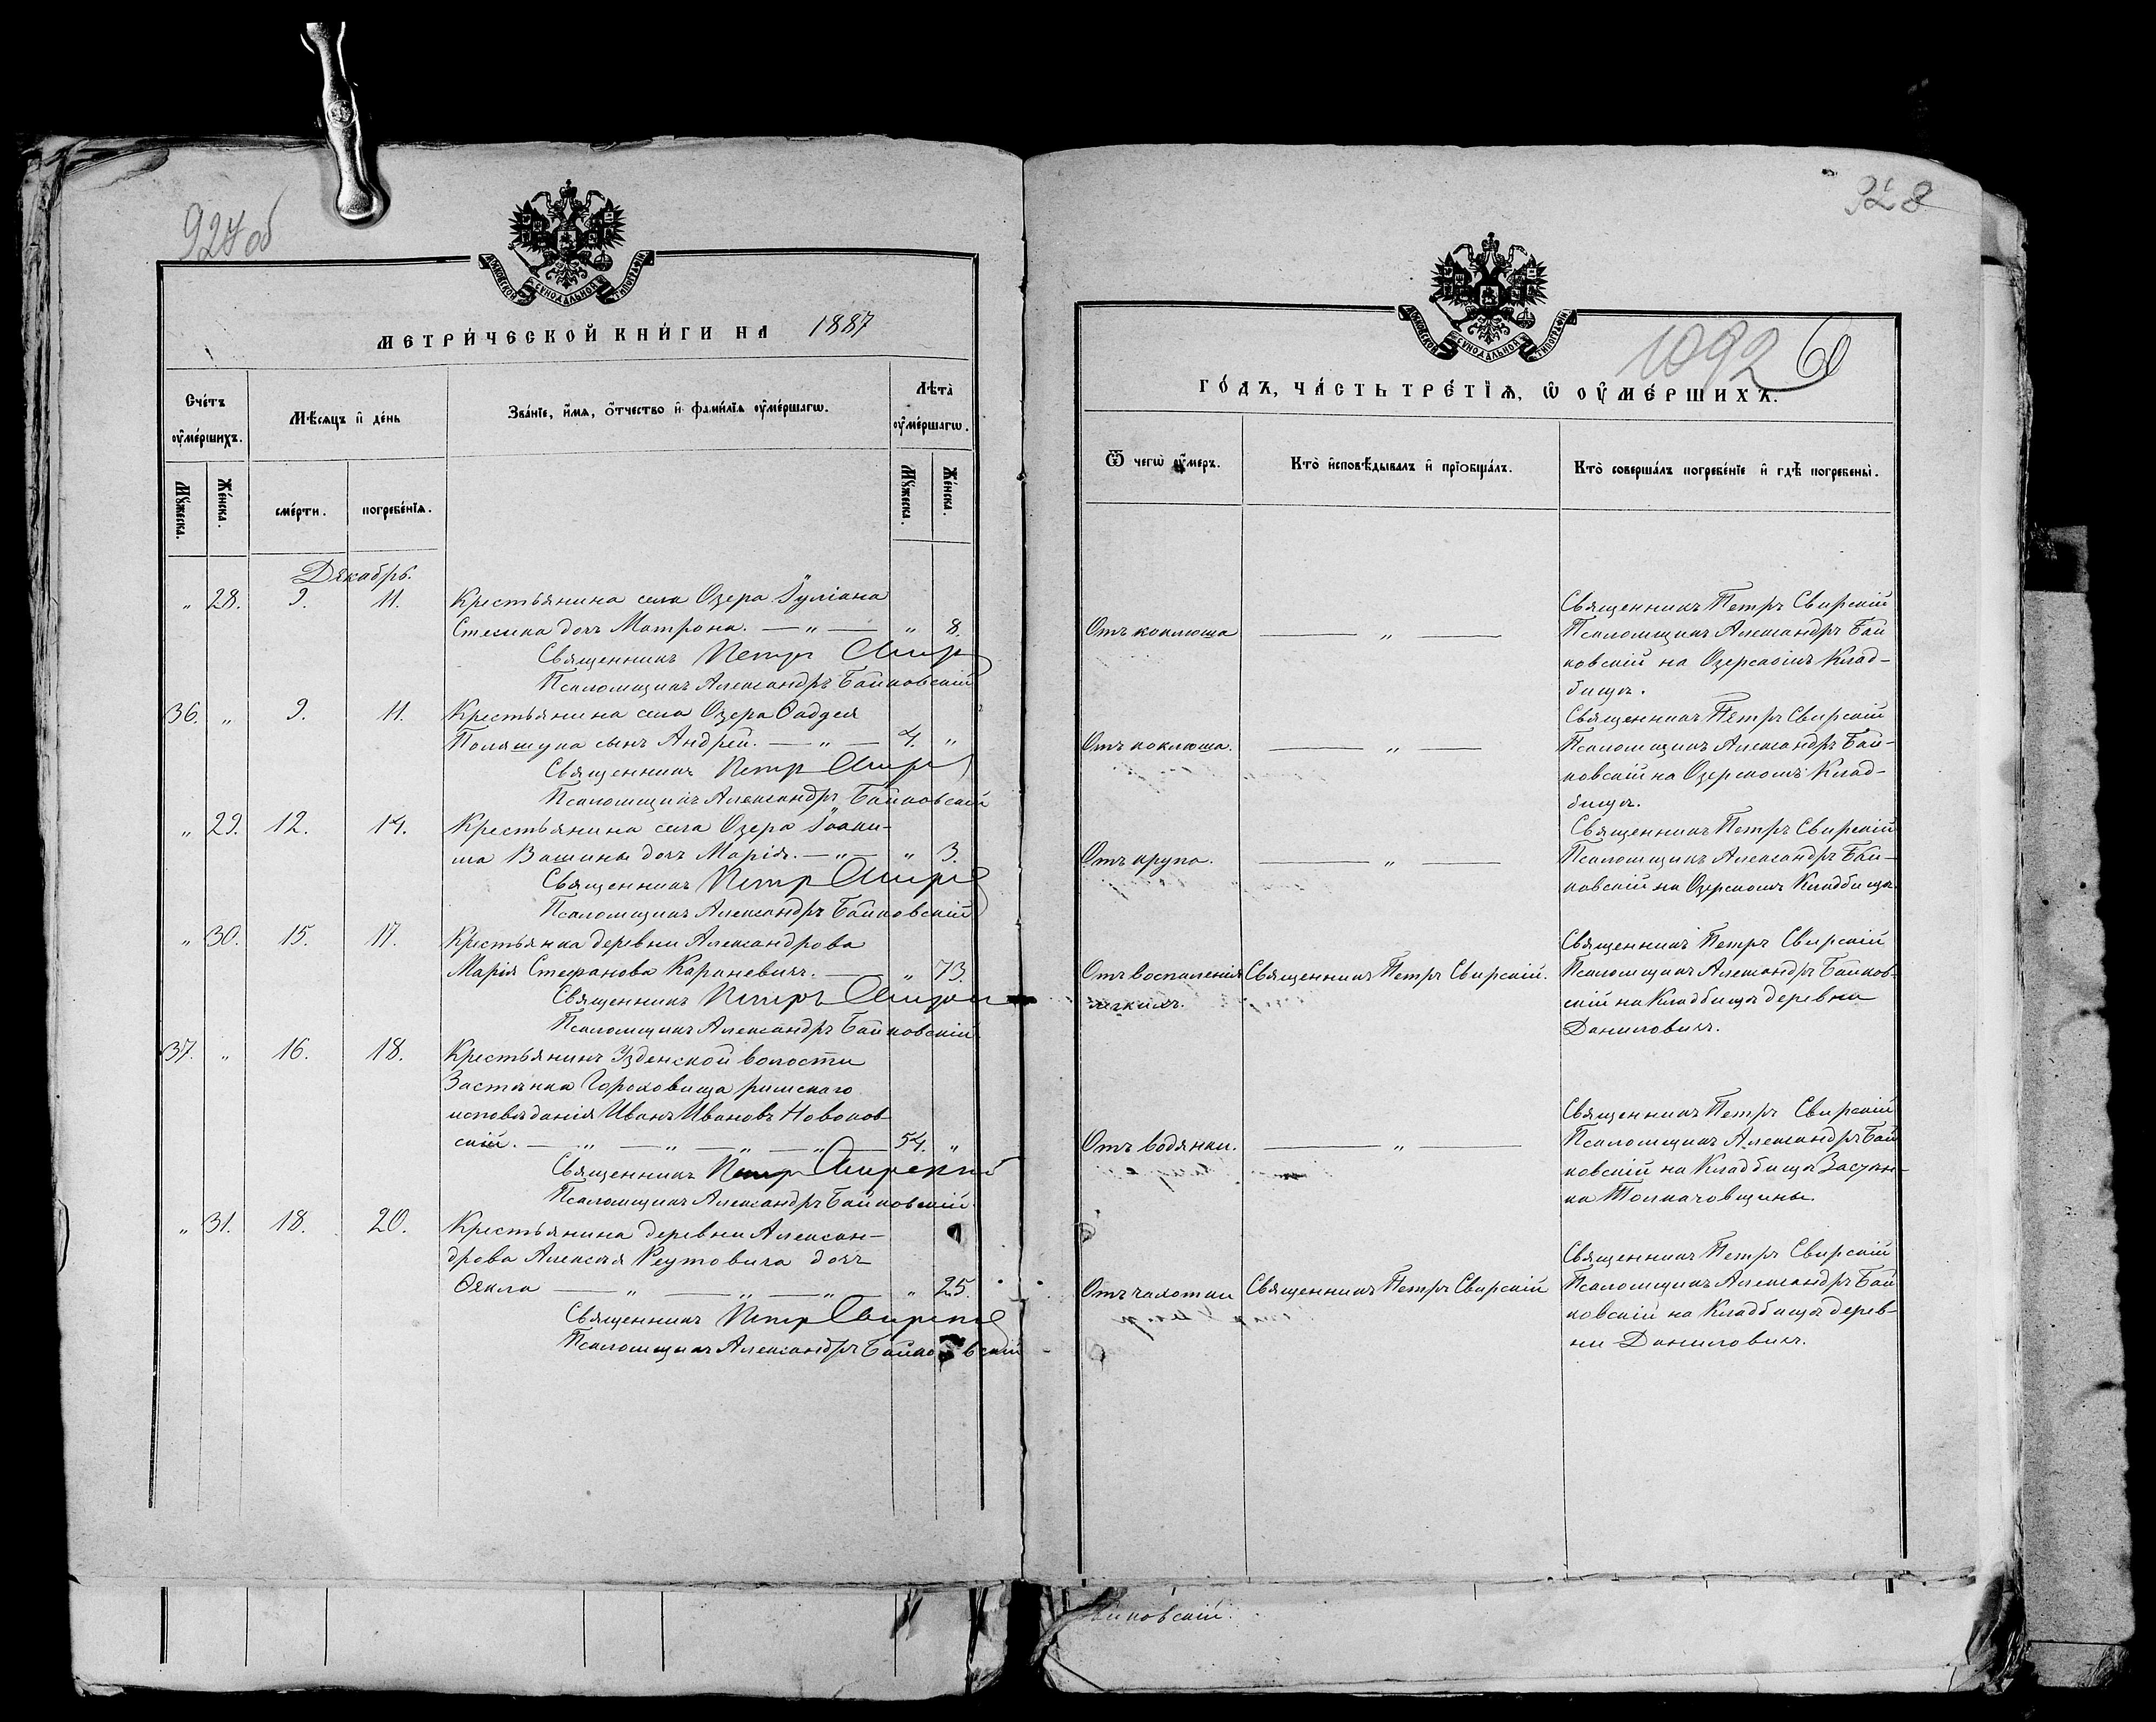 927 об
МОСКОВСКОЙ СѴНОДАЛЬНОЙ ТИПОГРАФІИ
МЕТРИ́ЧЕСКОЙ КНИ́ГИ НА 1887
Сче́тъ ᲂу҆ме́ршихъ.
Мѣ́сяцъ и҆ де́нь
Зва́нїе, и҆́мѧ, ѻ҆́тчество и҆ фами́лїѧ ᲂу҆ме́ршагѡ.
Лѣта̀ ᲂу҆ме́ршагѡ.
Мꙋ́жеска. Же́нска. сме́рти. погребе́нїѧ. Мꙋ́жеска. Же́нска.
Декабрь.
„ 28. 9. 11. Крестьянина села Озера Іуліана
дочь Матрона. — „ — „ 8.
Священникъ Петръ
Псаломщикъ Александръ Байковскій
36. „ 9. 11. Крестьянина села Озера Фаддея
Полящука сынъ Андрей. — „ — 4. „
Священникъ Петръ
Псаломщикъ Александръ Байковскій
„ 29. 12. 14. Крестьянина села Озера Іоаки-
ма дочь Марія. — „ — „ 3.
Священникъ Петръ
Псаломщикъ Александръ Байковскій
„ 30. 15. 17. Крестьянка деревни Александрова
Марія Стефанова Караневичъ. — „ 73.
Священникъ Петръ
Псаломщикъ Александръ Байковскій.
37. „ 16. 18. Крестьянинъ Узденской волости
Застѣнка Гороховища римскаго
исповѣданія Иванъ Ивановъ Новоков-
скій. — „ — „ — „ — „ — 54. „
Священникъ Петръ Свирскій
Псаломщикъ Александръ Байковскій.
„ 31. 18. 20. Крестьянина деревни Алексан-
дрова Алексѣя Реутовича дочь
Ѳекла — „ — „ — „ — „ 25.
Священникъ Петръ Свирскій
Псаломщикъ Александръ Байковскій
928
МОСКОВСКОЙ СѴНОДАЛЬНОЙ ТИПОГРАФІИ
1092 60
ГО́ДЪ, ЧА́СТЬ ТРЕ́ТЇѦ, Ѡ҆ ОУ҆МЕ́РШИХЪ.
Ѿ чегѡ̀ ᲂу҆́меръ.
Кто̀ и҆сповѣ́дывалъ и҆ прїобща́лъ.
Кто̀ соверша́лъ погребе́нїе и҆ гдѣ̀ погребены̀.
Священникъ Петръ Свирскій
Отъ коклюша — „ — Псаломщикъ Александръ Бай
ковскій на Озерскомъ Клад-
бищѣ.
Священникъ Петръ Свирскій
Отъ коклюша. — „ — Псаломщикъ Александръ Бай-
ковскій на Озерскомъ Клад-
бищѣ.
Священникъ Петръ Свирскій
Отъ крупа. — „ — Псаломщикъ Александръ Бай-
ковскій на Озерскомъ Кладбищѣ.
Священникъ Петръ Свирскій
Отъ воспаленія Священникъ Петръ Свирскій. Псаломщикъ Александръ Байков-
легкихъ. скій на Кладбищѣ деревни
Даниловичъ.
Священникъ Петръ Свирскій
Отъ водянки. — „ — Псаломщикъ Александръ Бай
ковскій на Кладбищѣ Застѣн-
ка Толкачовщины.
Священникъ Петръ Свирскій
Отъ чахотки Священникъ Петръ Свирскій Псаломщикъ Александръ Бай
ковскій на Кладбищѣ дерев-
ни Даниловичъ.
йковскій.